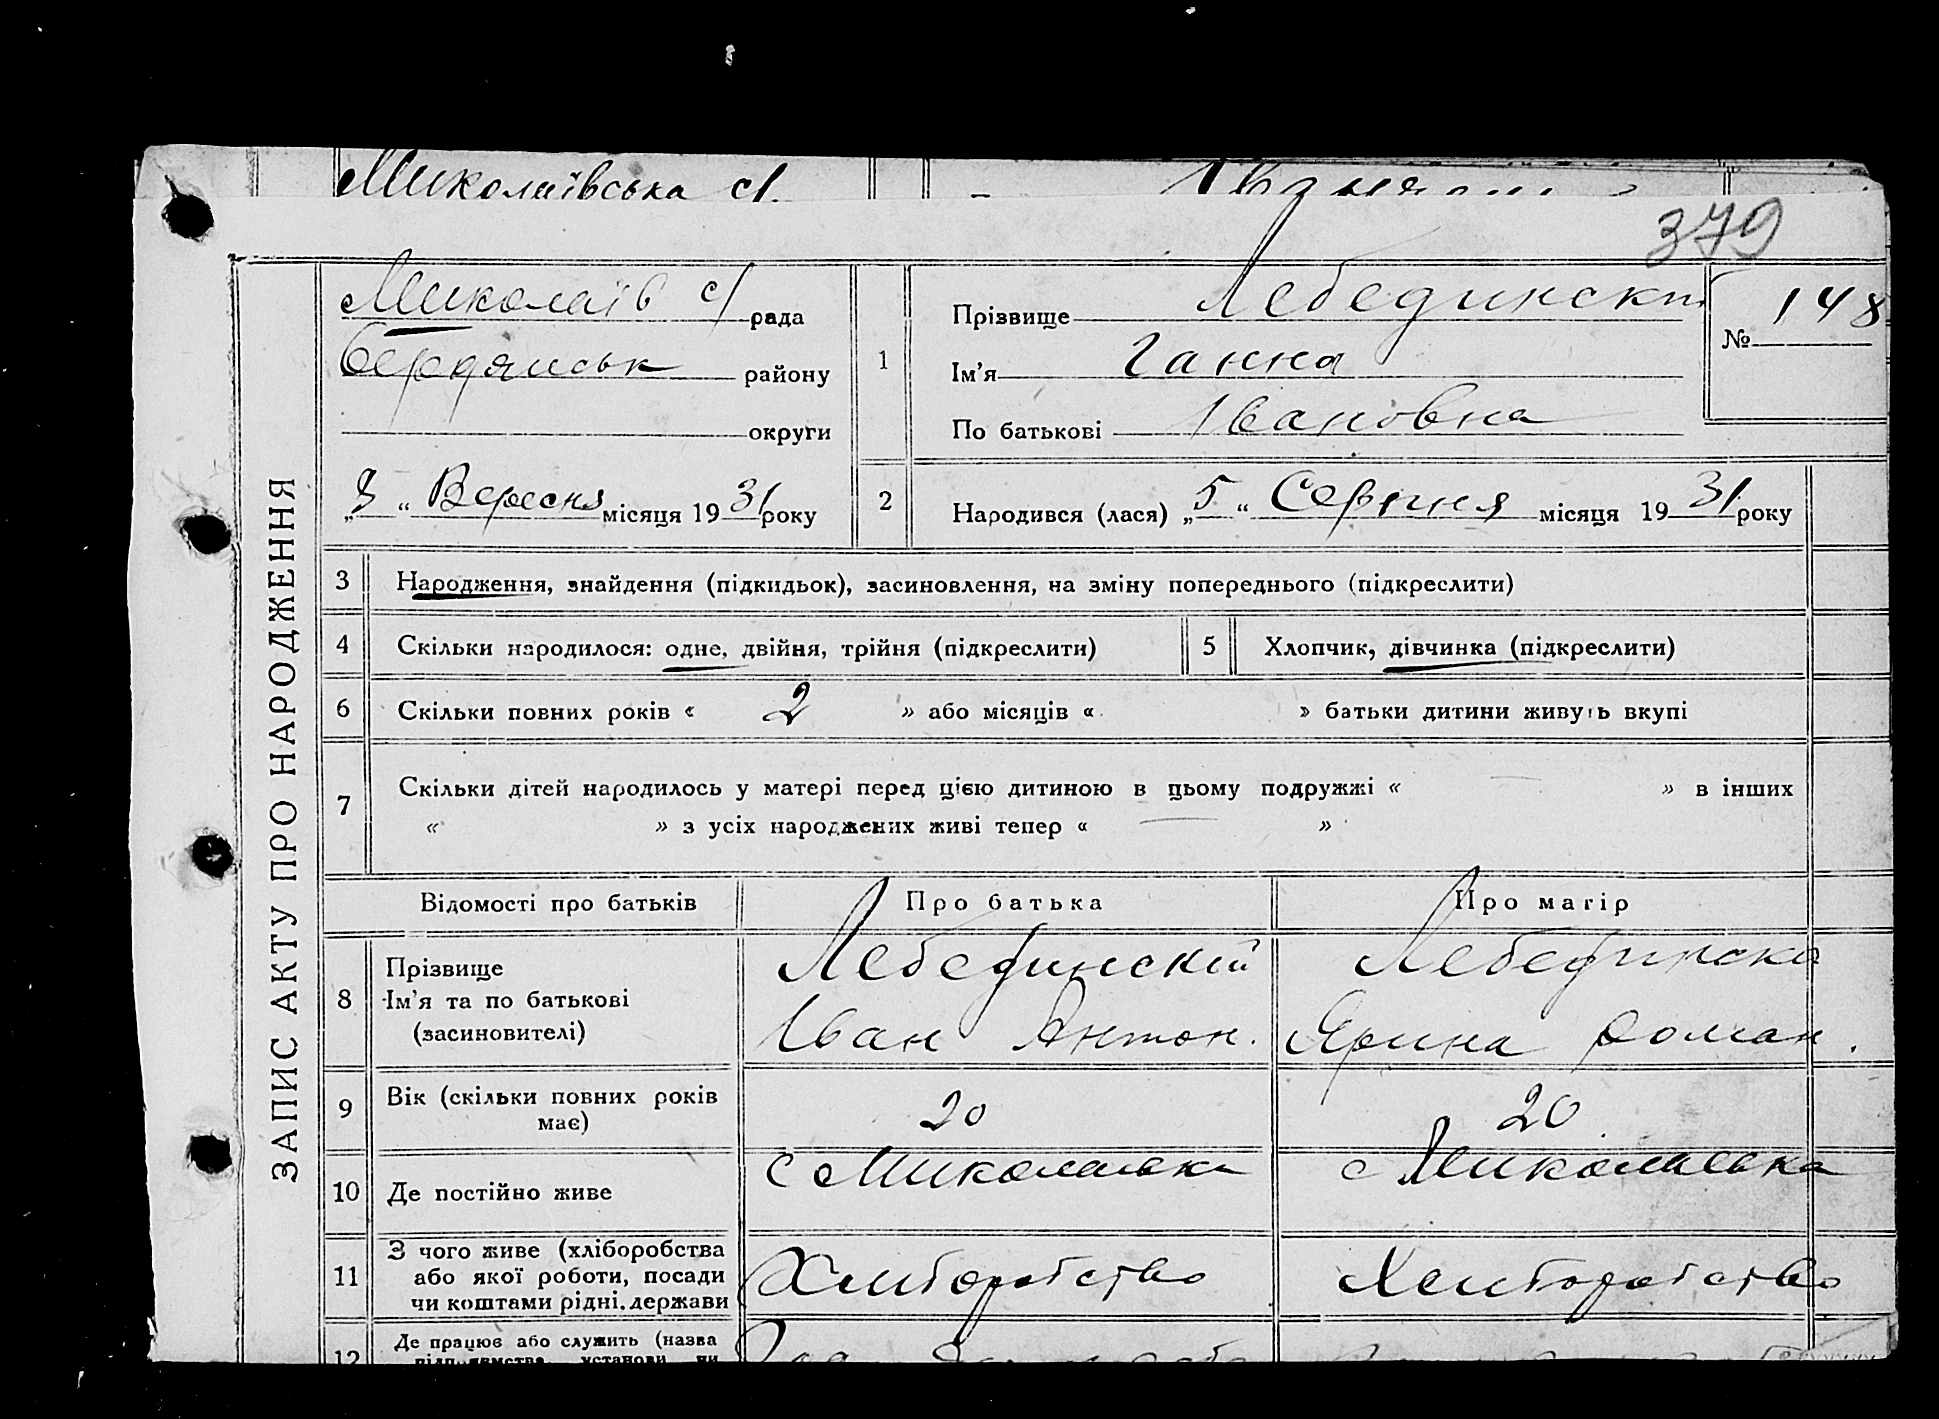 Миколаївська с/.
379
ЗАПИС АКТУ ПРО НАРОДЖЕННЯ
Миколаїв с/ рада
Бердянськ району
округи
„3“ Вересня місяця 1931 року
1
Прізвище Лебединск
Ім'я Ганна
По батькові Івановна
№ 148
2
Народився (лася) „5“ Серпня місяця 1931 року
3 Народження, знайдення (підкидьок), засиновлення, на зміну попереднього (підкреслити)
4 Скільки народилося: одне, двійня, трійня (підкреслити) 5 Хлопчик, дівчинка (підкреслити)
6 Скільки повних років « 2 » або місяців « » батьки дитини живуть вкупі
7 Скільки дітей народилось у матері перед цією дитиною в цьому подружжі « — » в інших
« » з усіх народжених живі тепер « — »
Відомості про батьків Про батька Про матір
8 Прізвище
Ім'я та по батькові
(засиновителі)
Лебединский
Іван Антон.
Лебединска
Ярина Роман.
9 Вік (скільки повних років
має)
20 20
10 Де постійно живе с Миколаевка с Миколаевка
11 З чого живе (хліборобства
або якої роботи, посади
чи коштами рідні, держави
Хлиборобство Хлиборобство
12 Де працює або служить (назва
підприємства, установи чи